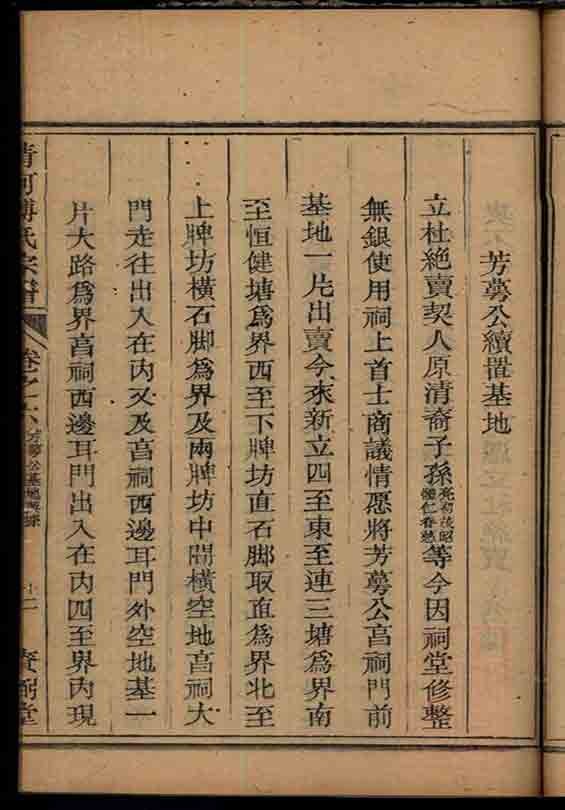 芳蕚公續置基地
立杜絶賣契人原清裔子孫亮初茂昭懷仁春懋等今因祠堂修整
無銀使用祠上首士商議情愿將芳蕚公亯祠門前
基地一片出賣今來新立四至東至連三塘爲界南
至恒健塘爲界西至下牌坊直石脚取直爲界北至
上牌坊橫石脚爲界及兩牌坊中間橫空地亯祠大
門走往出入在內又及亯祠西邊耳門外空地基一
片大路爲界亯祠西邊耳門出入在內四至界內現
清河傅氏宗譜 卷之六 芳蕚公基地契據 十二